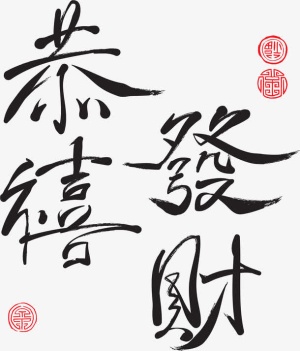 恭禧
發財